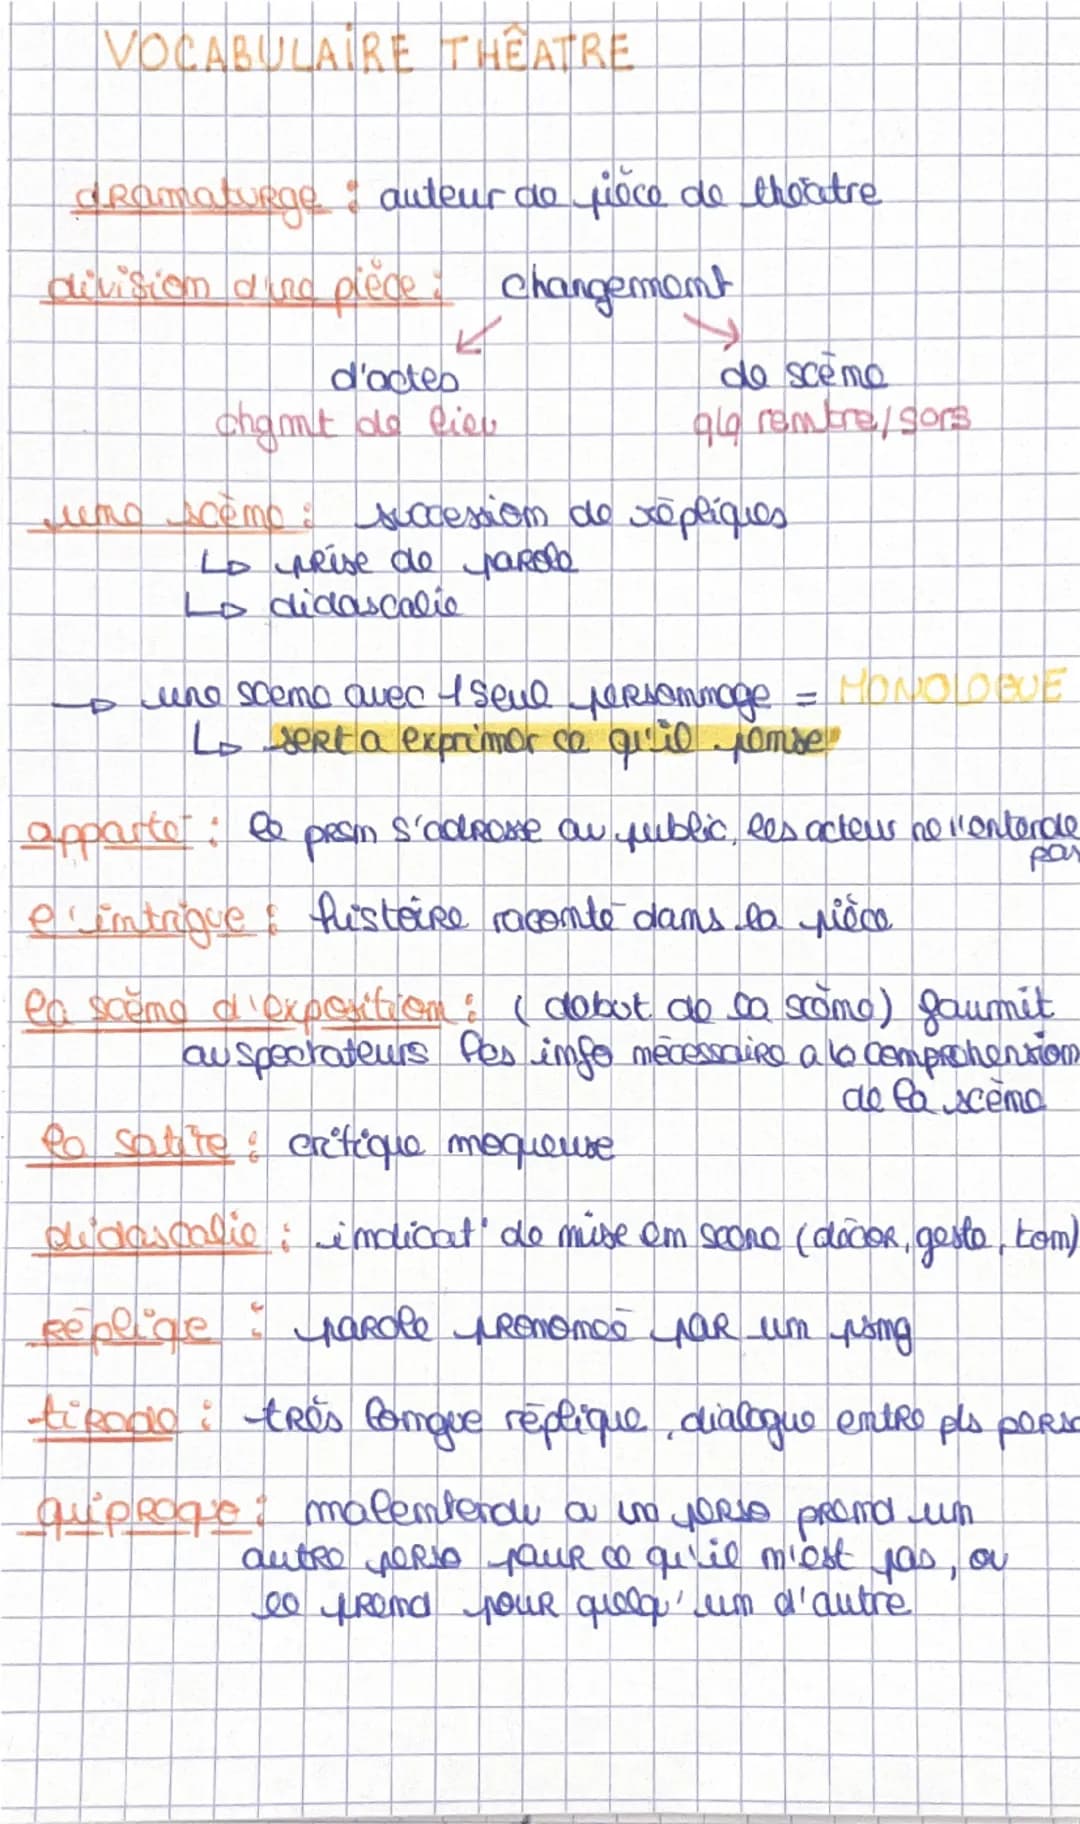 VOCABULAIRE THÊATRE
dramaturge : auteur de pièce de théâtre
division d'une pièce : changement
d'actes de scène
chgmt de lieu qlq rentre/sors
une scène : succession de répliques
↳ prise de parole
↳ didascalie
→ une scene avec 1 seul personnage = MONOLOGUE
↳ sert a exprimer ce qu'il pense
apparté : le prsn s'adresse au public, les acteur ne l'entende
pas
l'intrigue : histoire raconté dans la pièce
la scène d'exposition : (debut de la scène) fournit
au spectateurs les info nécessaire a la comprehension
de la scène
la satire : critique moqueuse
didascalie : indicat° de mise en scene (décor, geste, ton)
réplique : parole prononcé par un psng
tirade : très longue réplique, dialogue entre pls perso
quiproquo : malentendu a un perso prend un
autre perso pour ce qu'il n'est pas, ou
le prend pour quelqu'un d'autre